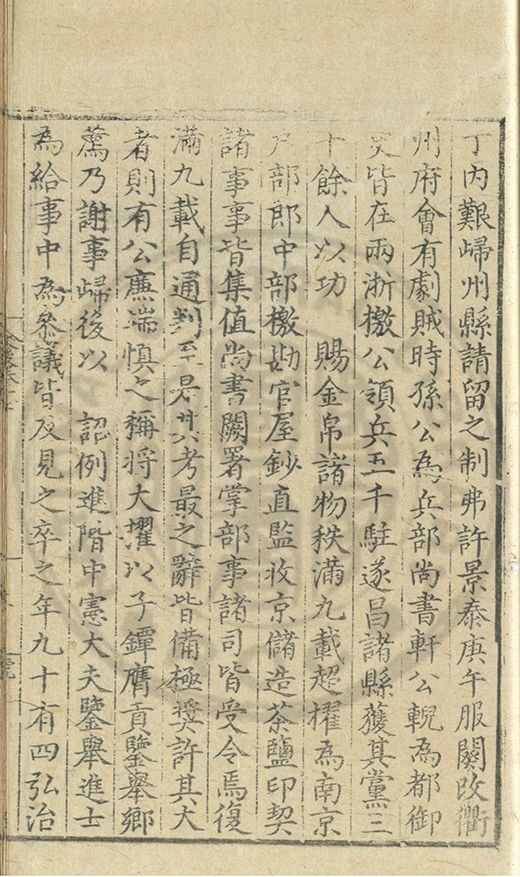 丁內艱歸州縣請留之制弗許景泰庚午服闋改衢
州府會有劇賊時孫公為兵部尚書軒公輗為都御
史皆在兩浙檄公領兵五千駐遂昌諸縣獲其黨三
十餘人以功 賜金帛諸物秩滿九載超擢為南京
戶部郎中部檄勘官屋鈔直監收京儲造茶鹽印契
諸事事皆集值尚書闕署掌部事諸司皆受令焉復
滿九載自通判至是廿六考最之辭皆備極奬許其大
者則有公廉端慎之稱將大擢以子鐔膺貢鑒舉鄉
薦乃謝事歸後以 詔例進階中憲大夫鑒舉進士
為給事中為叅議皆及見之卒之年九十有四弘治